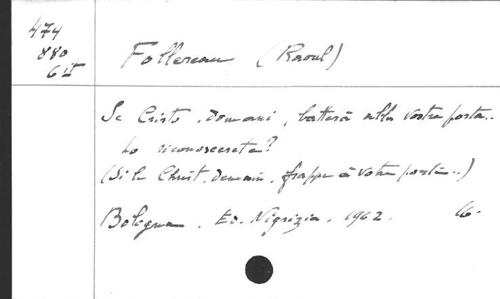 474
880
6 II
Follereau (Raoul)
Se Cristo, domani, batterà alla vostra porta..
Lo riconoscerete?
(Si le Christ, demain, frappe à votre porte..)
Bologna. Ed. Nigrizia. 1962. 16.